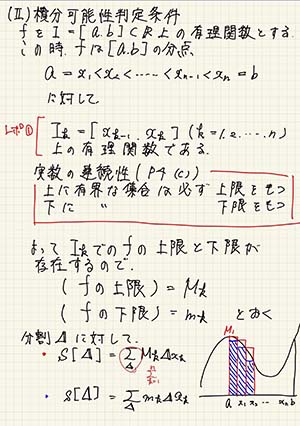 (II) 積分可能性判定条件
fをI=[a.b]⊂R上の有理関数とする.
この時.fは[a.b]の分点.
a=x₁<x₂<-----<xₙ₋₁<xₙ=b
に対して
Iₖ=[xₖ₋₁.xₖ](k=1.2.....n)
上の有理関数である.
実数の連続性(P4(c))
上に有界な集合は必ず上限をもつ
下に 〃 下限をもつ
よってIₖでのfの上限と下限が
存在するので.
(fの上限)=Mₖ
(fの下限)=mₖ とおく
分割Δに対して.
• S[Δ]=∑Mₖ Δxₖ
Δ
n
∑
k=1
• s[Δ]=∑mₖ Δxₖ
Δ
M₁
a x₁ x₂ ... xₙ b